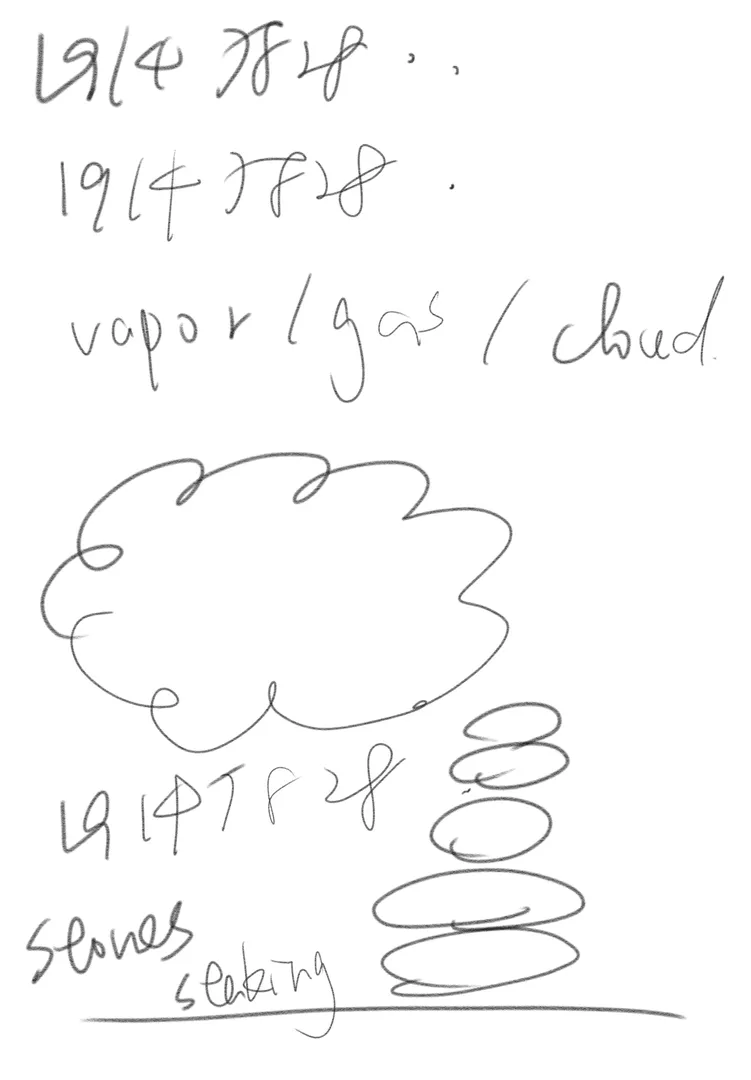 1914 7828
1914 7828
vapor / gas / cloud.
1914 7828
stones
staking